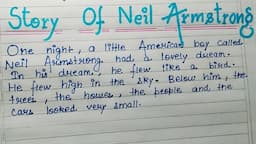 Story Of Neil Armstrong
One night, a little American boy called
Neil Armstrong had a lovely dream.
In his dream, he flew like a bird.
He flew high in the sky. Below him, the
trees, the houses, the people and the
cars looked very small.